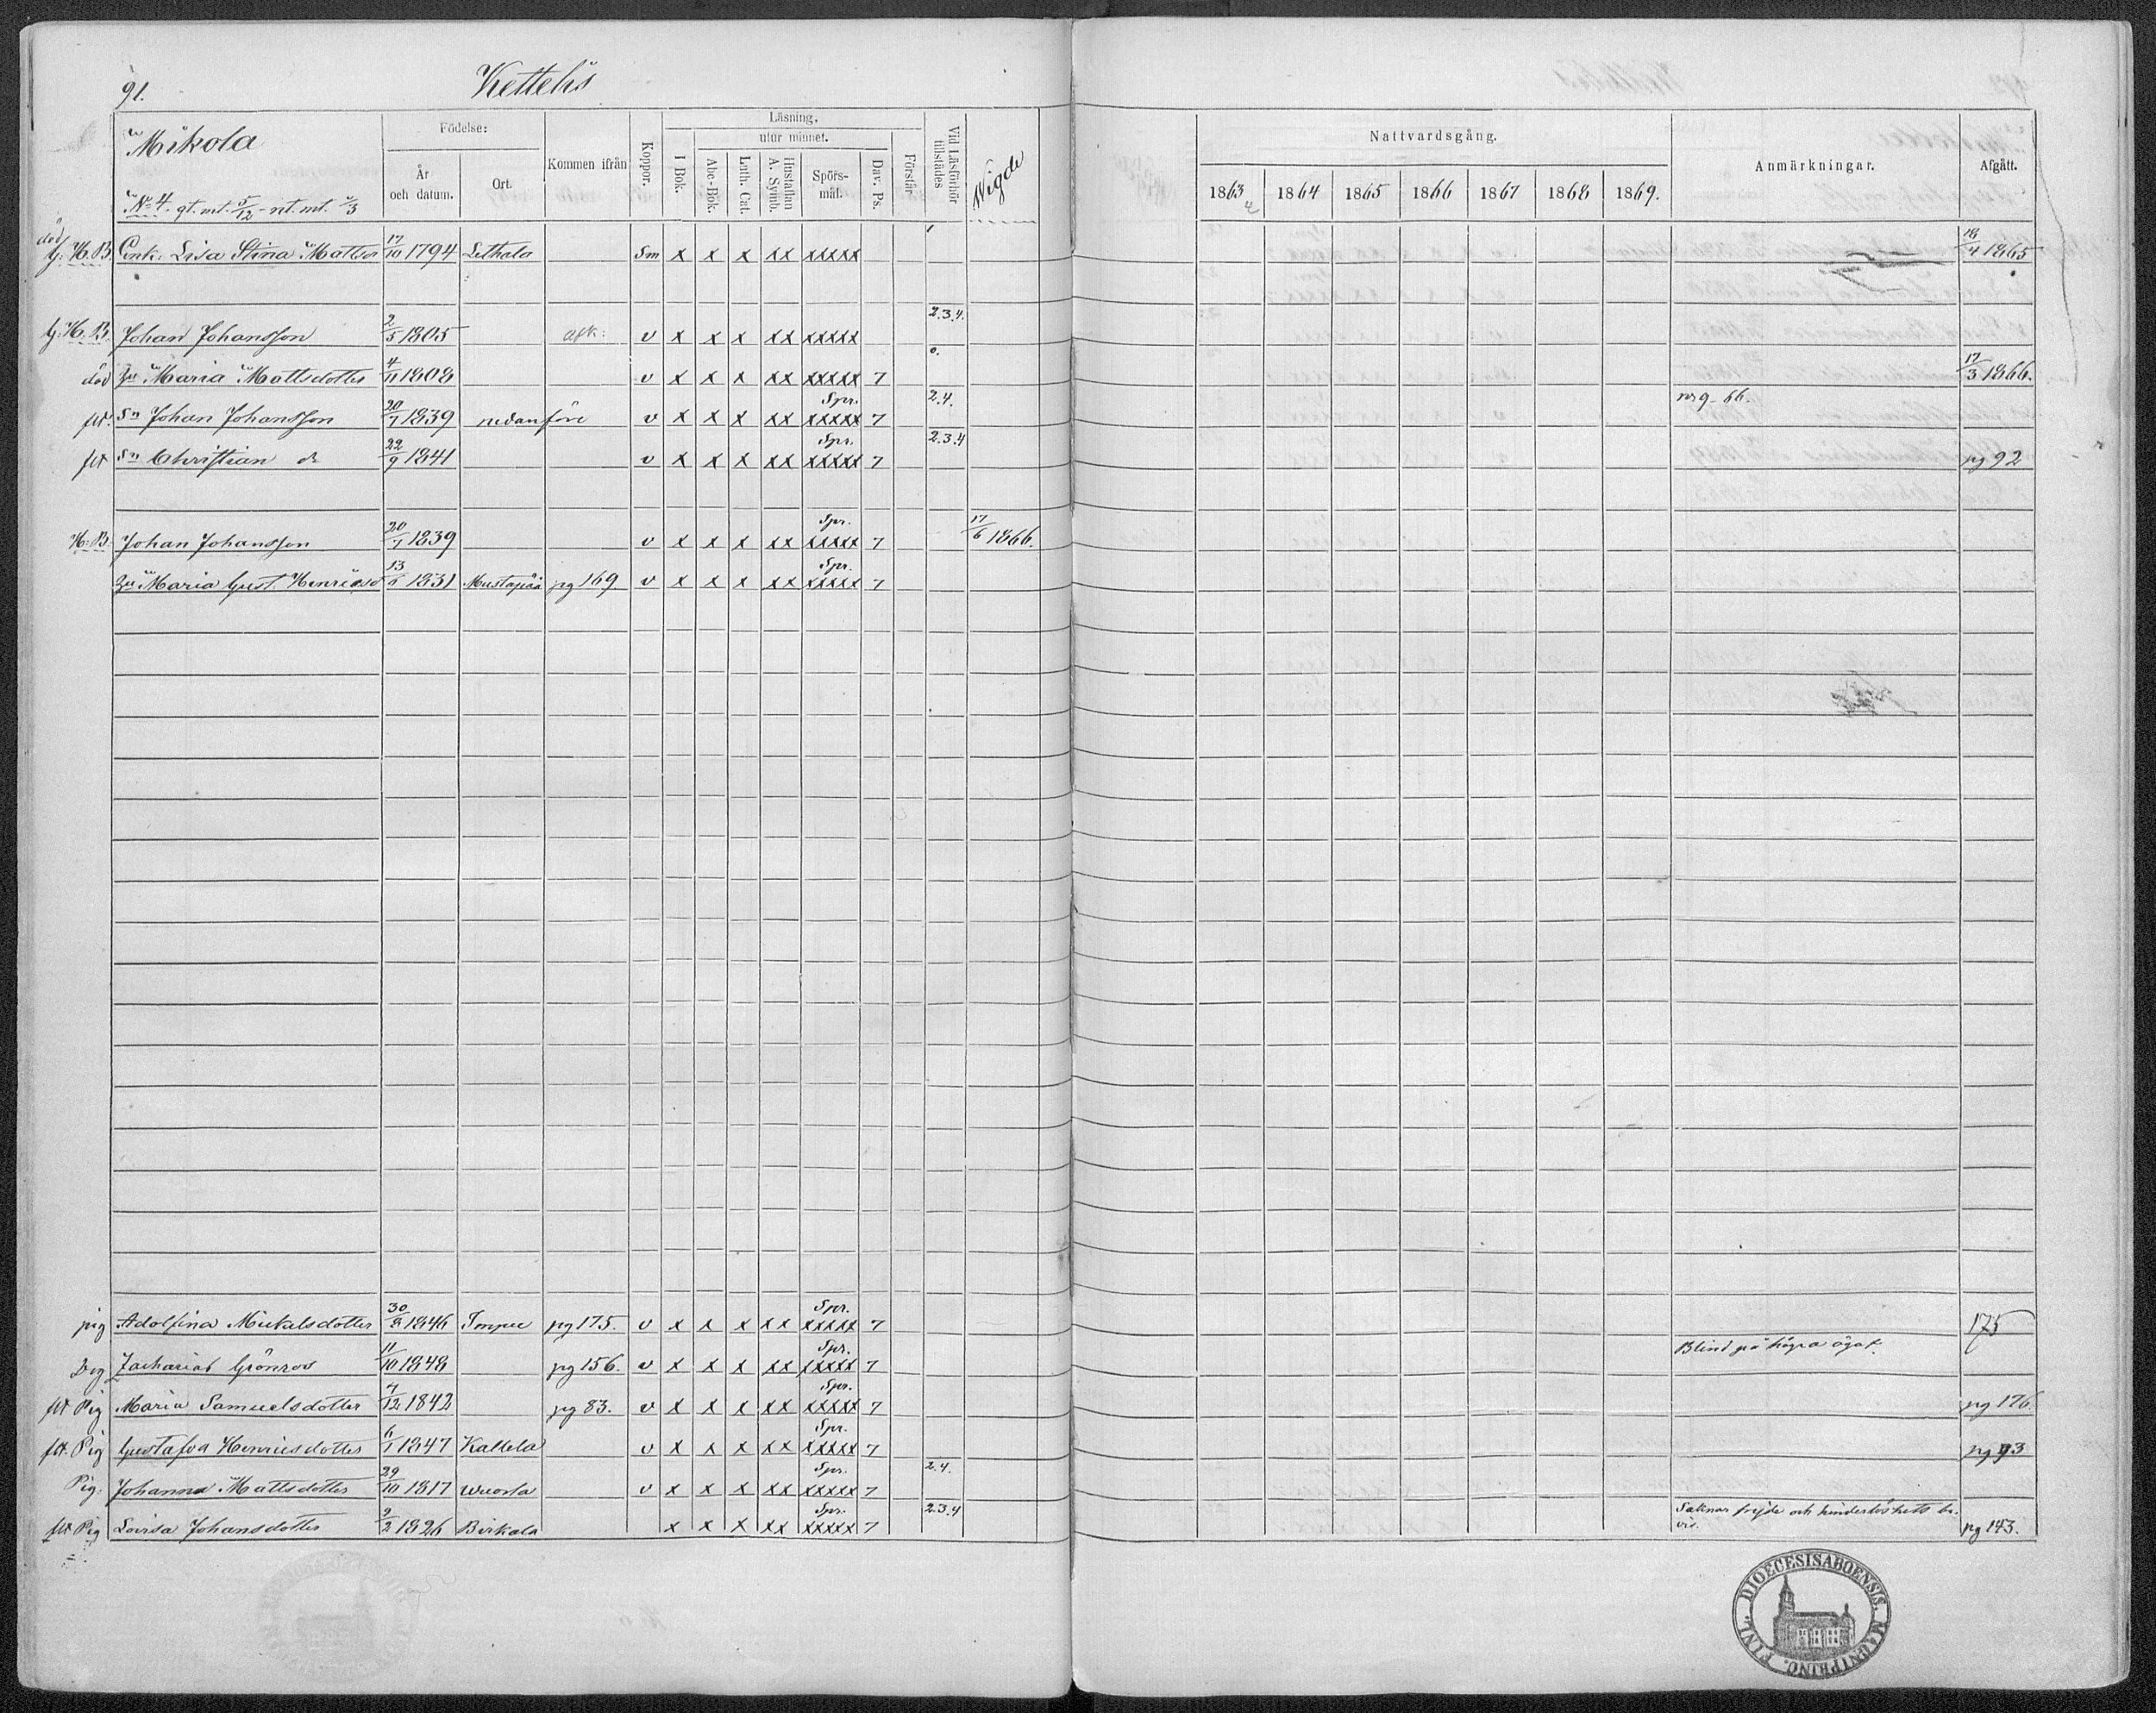 91. Kettelis
Mikola
Födelse:
Kommen ifrån
Koppor.
Läsning.
utur minnet.
I Bok.
Abc-Bok.
Luth. Cat.
Hustaflan A. Symb.
Spörs-
mål.
Dav. Ps.
Förstår
Vid Läsförhör tillstädes
Wigde
År
och datum.
Ort.
Nattvardsgång.
Anmärkningar.
Afgått.
1863 1864 1865 1866 1867 1868 1869.
N:o 4. gt. mt. 5/12 - nt. mt.
död
g: H. B. Enk: Lisa Stina Mattsd 17/10 1794 Lethala Sm x x x xx xxxxx 1 18/4 1865
g: H. B. Johan Johansson 2/5 1805 v x x x xx xxxxx 2.3.4.
död Hu Maria Mattsdotter 4/11 1808 v x x x xx xxxxx 7 0. 17/3 1866.
flt. Sn Johan Johansson 20/7 1839 nedanföre v x x x xx Spr. xxxxx 7 2.4.
flt Sn Christian d:o 22/9 1841 v x x x xx Spr. xxxxx 7 2.3.4 pg 92
H. B. Johan Johansson 20/7 1839 v x x x xx Spr. xxxxx 7 17/6 1866.
Hu Maria Gust. Henricsd 13/6 1831 Mustapää pg 169 v x x x xx Spr. xxxxx 7
pig Adolfina Mickelsdotter 30/8 1846 Impu pg 175. v x x x xx Spr. xxxxx 7 175
Dg Zacharias Grönros 11/10 1848 pg 156. v x x x xx Spr. xxxxx 7 Blind på högra ögat.
flt Pig Maria Samuelsdotter 4/12 1842 pg 83. v x x x xx Spr. xxxxx 7 pg 176.
flt. Pig Gustafva Henricsdotter 6/1 1847 Kallela v x x x xx Spr. xxxxx 7 pg 93
Pig: Johanna Mattsdotter 29/10 1817 Wuorla v x x x xx Spr. xxxxx 7 2.4.
flt Pig Lovisa Johansdotter 9/2 1826 Birkala x x x xx Spr. xxxxx 7 2.3.4 Saknar frejde och hinderlöshets be-
vis. pg 143.
FINL. DIOECESIS ABOENSIS. MAGNI PRINC.